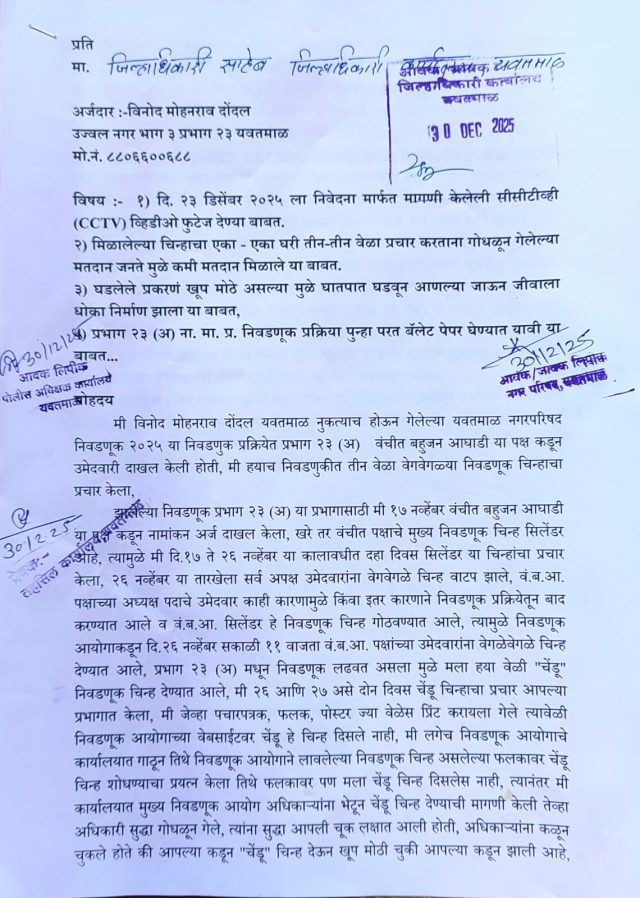 प्रति
मा. जिल्हाधिकारी साहेब जिल्हाधिकारी कार्यालय यवतमाळ
आवक जावक
जिल्हाधिकारी कार्यालय
यवतमाळ
30 DEC 2025
अर्जदार :-विनोद मोहनराव दोंदल
उज्वल नगर भाग ३ प्रभाग २३ यवतमाळ
मो.नं. ८८०६६००६८८
विषय :- १) दि. २३ डिसेंबर २०२५ ला निवेदना मार्फत मागणी केलेली सीसीटीव्ही
(CCTV) व्हिडीओ फुटेज देण्या बाबत.
२) मिळालेल्या चिन्हाचा एका - एका घरी तीन-तीन वेळा प्रचार करताना गोधळून गेलेल्या
मतदान जनते मुळे कमी मतदान मिळाले या बाबत.
३) घडलेले प्रकरणं खूप मोठे असल्या मुळे घातपात घडवून आणल्या जाऊन जीवाला
धोका निर्माण झाला या बाबत,
४) प्रभाग २३ (अ) ना. मा. प्र. निवडणूक प्रक्रिया पुन्हा परत बॅलेट पेपर घेण्यात यावी या
बाबत...
30/12/25
आवक लिपीक
पोलीस अधिक्षक कार्यालय
यवतमाळ
30/12/25
आवक/जावक लिपीक
नगर परिषद, यवतमाळ
मोहदय
मी विनोद मोहनराव दोंदल यवतमाळ नुकत्याच होऊन गेलेल्या यवतमाळ नगरपरिषद
निवडणूक २०२५ या निवडणुक प्रक्रियेत प्रभाग २३ (अ) वंचीत बहुजन आघाडी या पक्ष कडून
उमेदवारी दाखल केली होती, मी हयाच निवडणुकीत तीन वेळा वेगवेगळ्या निवडणूक चिन्हाचा
प्रचार केला,
झालेल्या निवडणूक प्रभाग २३ (अ) या प्रभागासाठी मी १७ नव्हेंबर वंचीत बहुजन आघाडी
या पक्ष कडून नामांकन अर्ज दाखल केला, खरे तर वंचीत पक्षाचे मुख्य निवडणूक चिन्ह सिलेंडर
आहे, त्यामुळे मी दि.१७ ते २६ नव्हेंबर या कालावधीत दहा दिवस सिलेंडर या चिन्हांचा प्रचार
केला, २६ नव्हेंबर या तारखेला सर्व अपक्ष उमेदवारांना वेगवेगळे चिन्ह वाटप झाले, वं.ब.आ.
पक्षाच्या अध्यक्ष पदाचे उमेदवार काही कारणामुळे किंवा इतर कारणाने निवडणूक प्रक्रियेतून बाद
करण्यात आले व वं.ब.आ. सिलेंडर हे निवडणूक चिन्ह गोठवण्यात आले, त्यामुळे निवडणूक
आयोगाकडून दि.२६ नव्हेंबर सकाळी ११ वाजता वं.ब.आ. पक्षांच्या उमेदवारांना वेगळेवेगळे चिन्ह
देण्यात आले, प्रभाग २३ (अ) मधून निवडणूक लढवत असला मुळे मला हया वेळी "चेंडू"
निवडणूक चिन्ह देण्यात आले, मी २६ आणि २७ असे दोन दिवस चेंडू चिन्हाचा प्रचार आपल्या
प्रभागात केला, मी जेव्हा पचारपत्रक, फलक, पोस्टर ज्या वेळेस प्रिंट करायला गेले त्यावेळी
निवडणूक आयोगाच्या वेबसाईटवर चेंडू हे चिन्ह दिसले नाही, मी लगेच निवडणूक आयोगाचे
कार्यालयात गाठून तिथे निवडणूक आयोगाने लावलेल्या निवडणूक चिन्ह असलेल्या फलकावर चेंडू
चिन्ह शोधण्याचा प्रयत्न केला तिथे फलकावर पण मला चेंडू चिन्ह दिसलेस नाही, त्यानंतर मी
कार्यालयात मुख्य निवडणूक आयोग अधिकाऱ्यांना भेटून चेंडू चिन्ह देण्याची मागणी केली तेव्हा
अधिकारी सुद्धा गोधळून गेले, त्यांना सुद्धा आपली चूक लक्षात आली होती, अधिकाऱ्यांना कळून
चुकले होते की आपल्या कडून "चेंडू" चिन्ह देऊन खूप मोठी चुकी आपल्या कडून झाली आहे,
30.12.25
तहसिल कार्यालय यवतमाळ